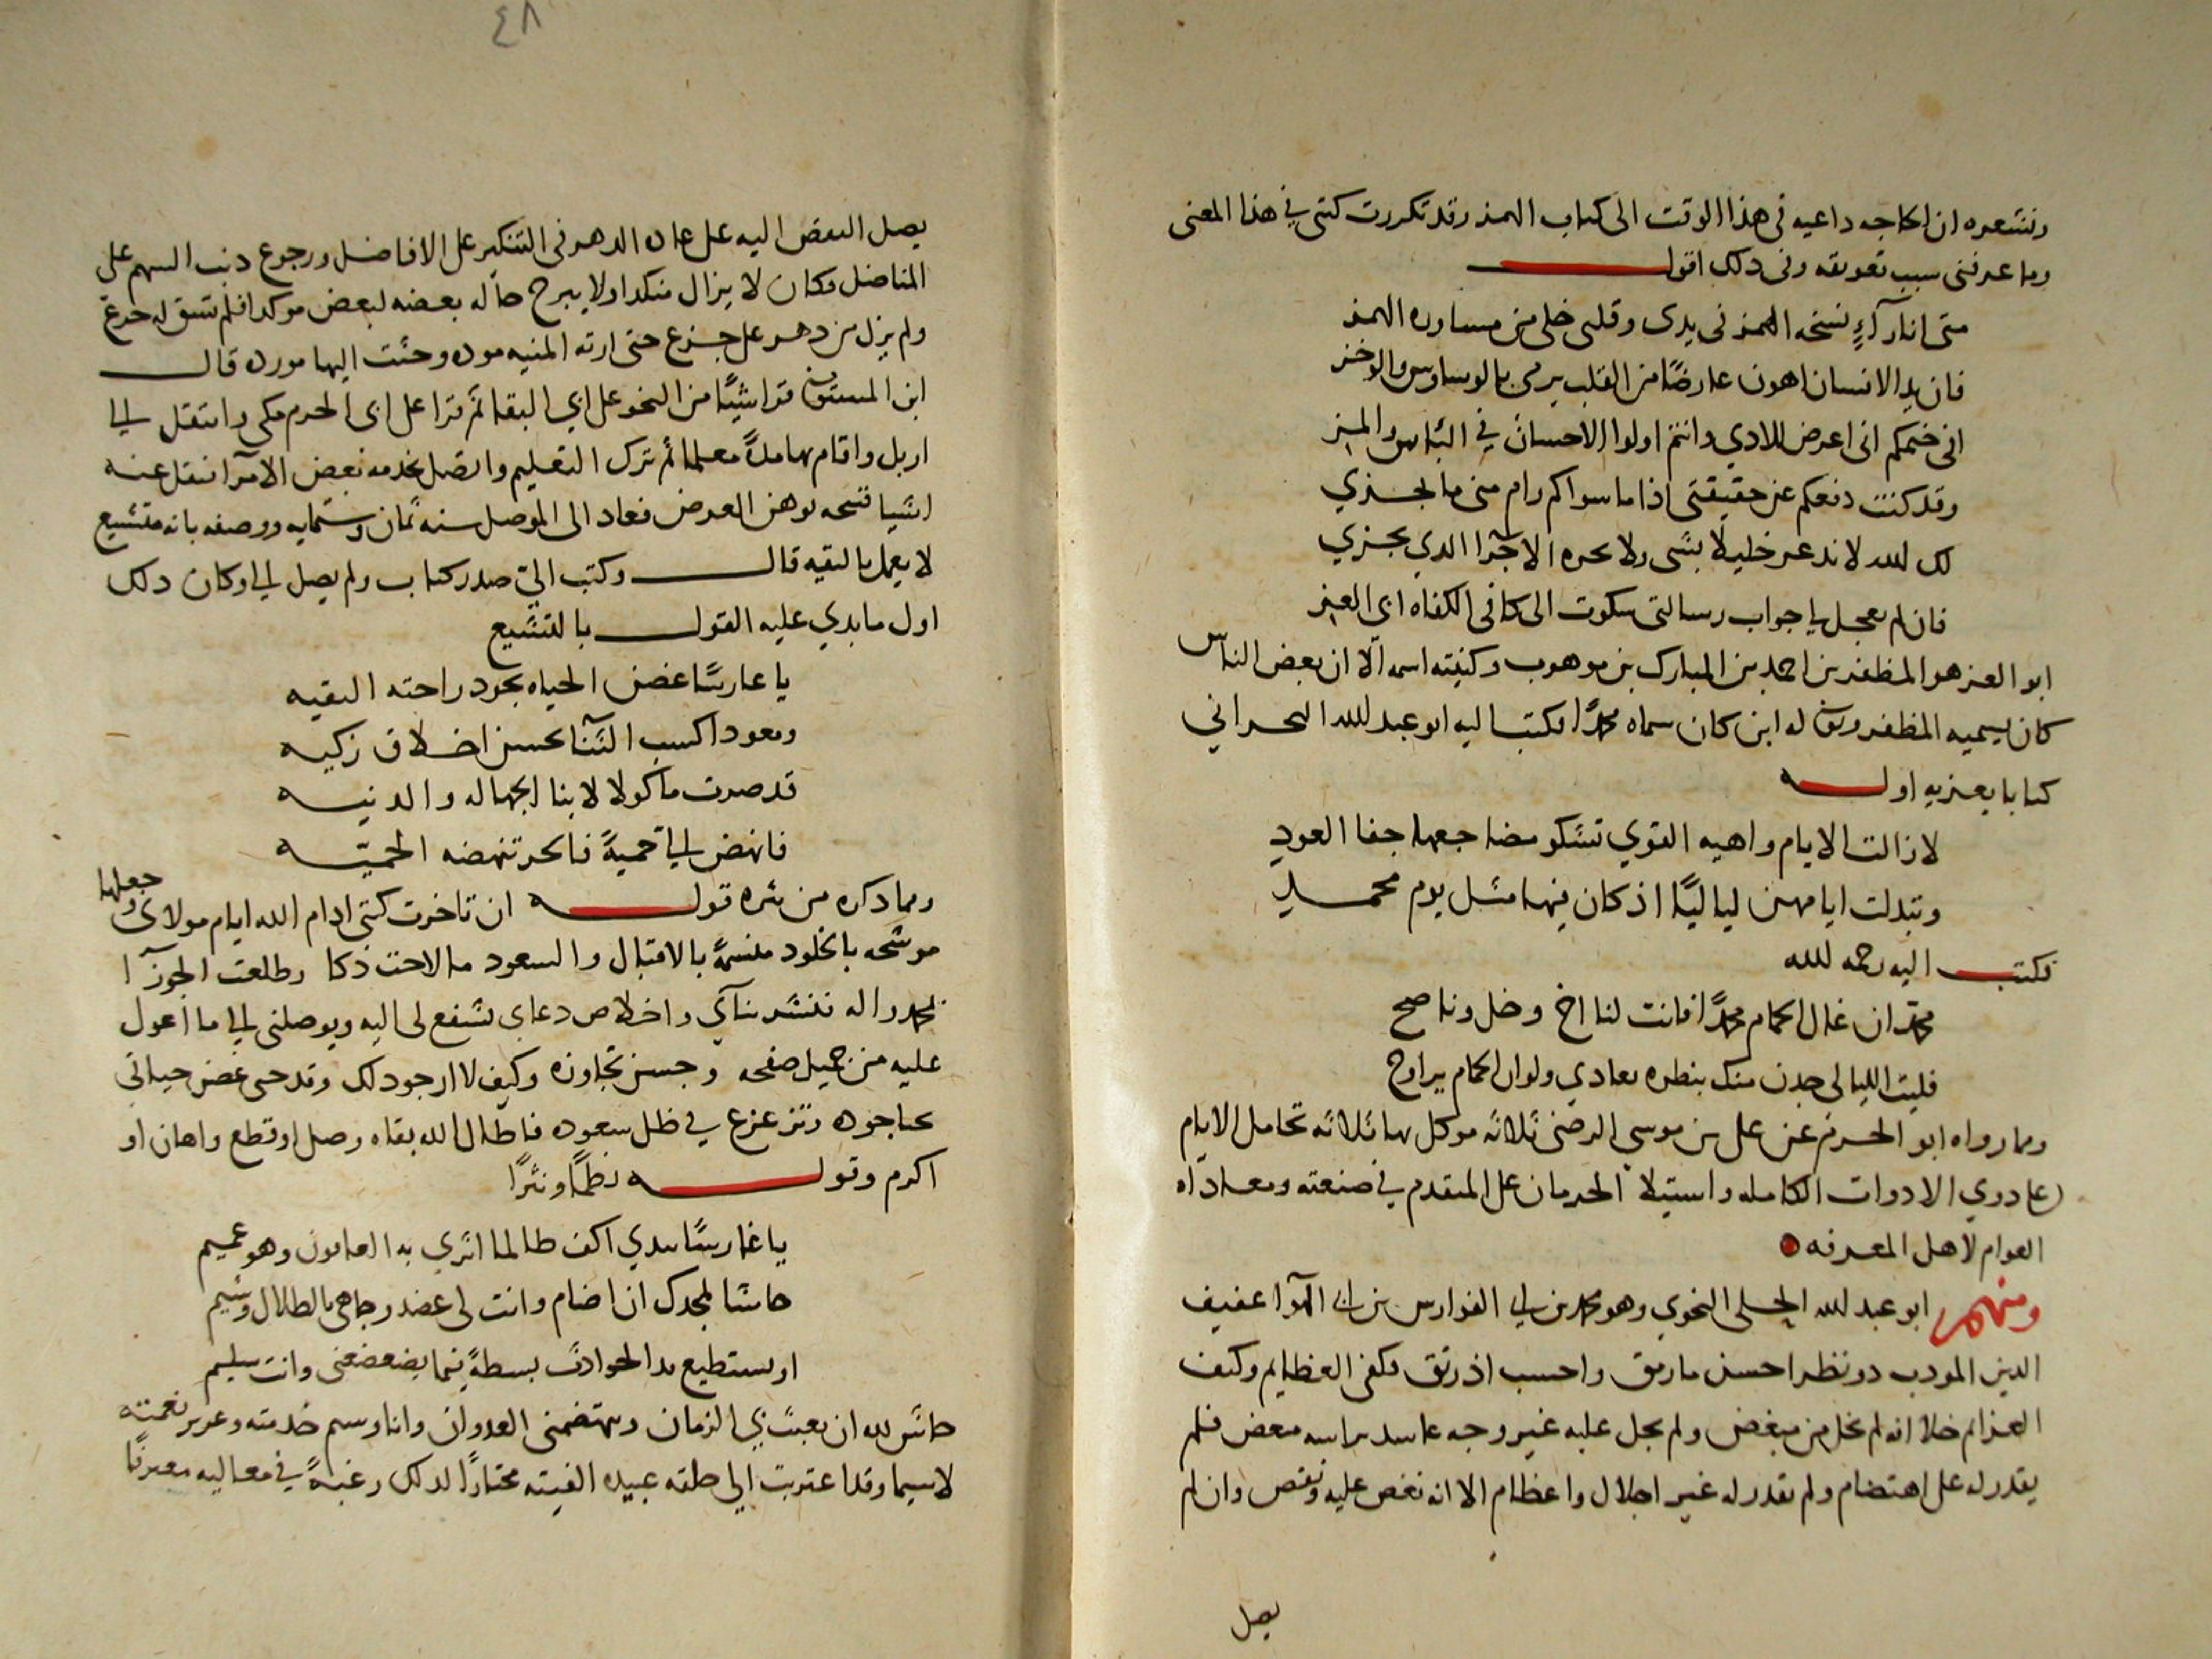 ونشعره ان الحاجه داعيه فى هذا الوقت الى كتاب الهمذ وقد تكررت كتبى في هذا المعنى
وما عرفنى سبب تعويقه وفى ذلك اقول
متى انا رآءٍ نسخه الهمز فى يدى وقلبى خلى من مساوره الهمز
فان يد الانسان اهون عارضًا من القلب يرمى بالوساوس والوخز
انى ضيمكم انى اعرض للادي وانتم اولوا الاحسان في الناس والميز
وقد كنت دفعكم عن حقيقتى اذا ما سواكم رام منى ما يجزي
لك لله لا تدعر خليلا بشى ولا بجره الا جزا الدي يجزي
فان لم يعجل لي جواب رسالتى شكوت الى كافى الكفاه ابى العز
ابو العز هو المظفر بن احمد بن المبارك بن موهوب وكنيته اسمه الا ان بعض الناس
كان يسميه المظفر وتوفى له ابن كان سماه محمدًا فكتب اليه ابو عبد لله البحراني
كتابا يعزيه اوله
لا زالت الايام واهيه القوي تشكو مضاجعها جفا العود
وتبدلت ايامهن لياليًا اذ كان فيها مثل يوم محمد
فكتب اليه رحمه لله
محمد ان غال الحمام محمدًا فانت لنا اخ وخل وناصح
فليت الليالى جدن منك بنظره تغادي ولو ان الحمام يراوح
ومما رواه ابو الحرم عن على بن موسى الرضى ثلاثه موكل بها ثلاثه تحامل الايام
على ذوي الادوات الكامله واستيلا الحرمان على المتقدم في صنعته ومعاداه
العوام لاهل المعرفه
ومنهم ابو عبد لله الحلى النحوي وهو محمد بن ابي الفوارس بن ابى الهوا عفيف
الدين المودب ذو نظر احسن ما رمق واحسب اذ رتق فكفى العظايم وكيف
العزايم خلا انه لم يخل من مبغض ولم يجل عليه غير وجه حاسد براسه منغض فلم
يقدر له على اهتضام ولم يقدر له غير اجلال واعظام الا انه نغص عليه ونقص وان لم
يصل
٤٨
يصل النقص اليه على عاده الدهر فى التنكير على الافاضل ورجوع ذنب السهم على
المناضل وكان لا يزال منكدا ولا يبرح حاله بعضه لبعض موكدا فلم تسق له جرع
ولم يزل من دهره على جزع حتى ارته المنيه موده وحثت اليها مورده قال
ابن المستوفى قرا شيًا من النحو على ابي البقا ثم قرا على ابى الحرم مكى وانتقل الى
اربل واقام بها مدةً معلما ثم ترك التعليم واتصل بخدمه بعض الامرآ فنقل عنه
اشيا قبيحه توهن العرض فعاد الى الموصل سنه ثمان وستمايه ووصفه بانه متشيع
لا يعمل بالتقيه قال وكتب الي صدر كتاب ولم يصل الي وكان ذلك
اول ما بدي عليه القول بالتشيع
يا غارسًا غض الحياه بجود راحته النقيه
ومعودا كسب الثنا بحسن اخلاق زكيه
قد صرت ماكولا لابنا الجهاله والدنيه
فانهض لي حميةً فالحر تنهضه الحميه
ومما ذكره من نثره قوله ان تاخرت كتبى ادام الله ايام مولاى وجعلها
موشحه بالخلود متسمةً بالاقبال والسعود ما لاحت ذكا وطلعت الجوزآ
بمحمد واله فنشر ثنآي واخلاص دعاي تشفع لى اليه ويوصلنى الى ما اعول
عليه من جميل صفحه وحسن تجاوزه وكيف لا ارجو ذلك وقد حى غض حياتى
بحيا جوده وتزعزع في ظل سعوده فاطال الله بقاه وصل او قطع واهان او
اكرم وقوله نظمًا ونثرًا
يا غارسًا بيدي اكف طالما اثري به العافون وهو عميم
حاشا لمجدك ان اضام وانت لى عضد وجاهى بالطلال وشيم
او يستطيع يد الحوادث بسطةً فيما يضعضعنى وانت سليم
حاش لله ان يعبث بي الزمان ويهتضمنى العدوان وانا وسم خدمته وعرير نعمته
لا سيما وقد اعتزيت الى حلقه عبيده الفيته مختارًا لذلك رغبةً في معاليه معترفًا